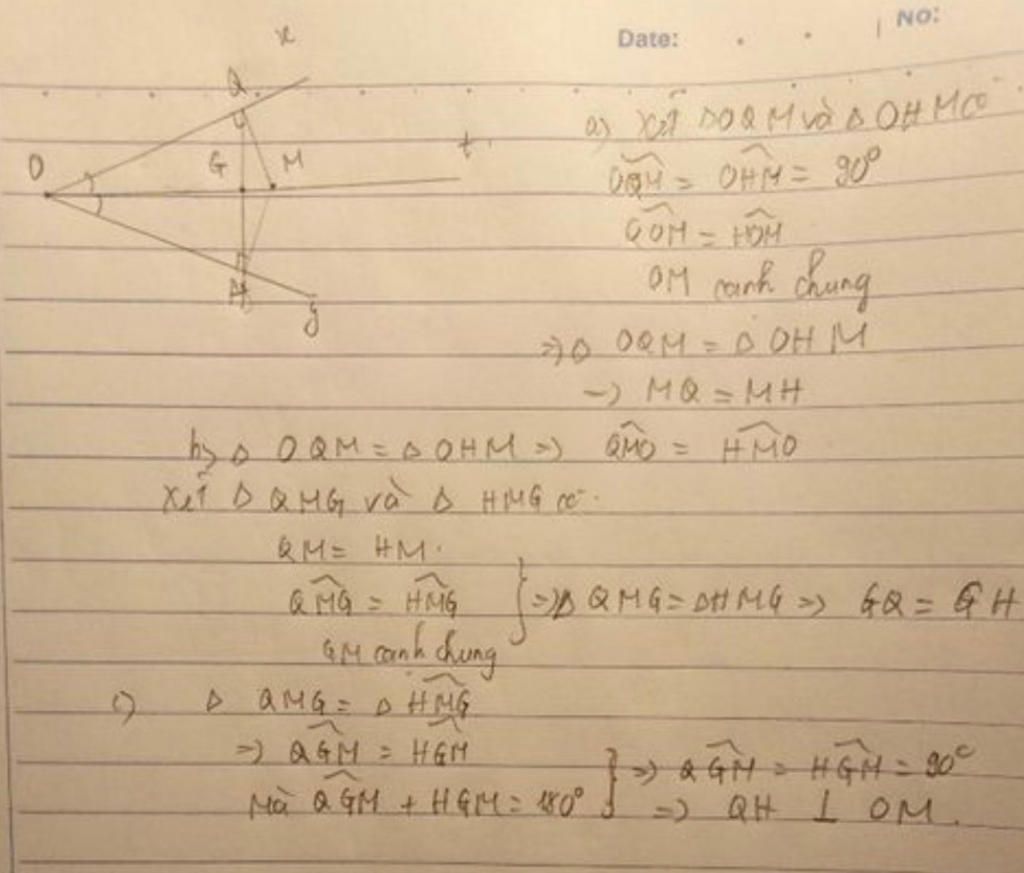 Date:
NO:
x
Q
O
G
M
t
H
y
a) Xét ΔOQM và ΔOHM có
OQM = OHM = 90°
QOM = HOM
OM cạnh chung
=> Δ OQM = Δ OHM
-> MQ = MH
b) Δ OQM = Δ OHM => QMO = HMO
Xét Δ QMG và Δ HMG có
QM = HM.
QMG = HMG
GM cạnh chung
} => Δ QMG = ΔHMG => GQ = GH
c) Δ QMG = Δ HMG
=> QGM = HGM
Mà QGM + HGM = 180°
} => QGM = HGM = 90°
=> QH ⊥ OM.